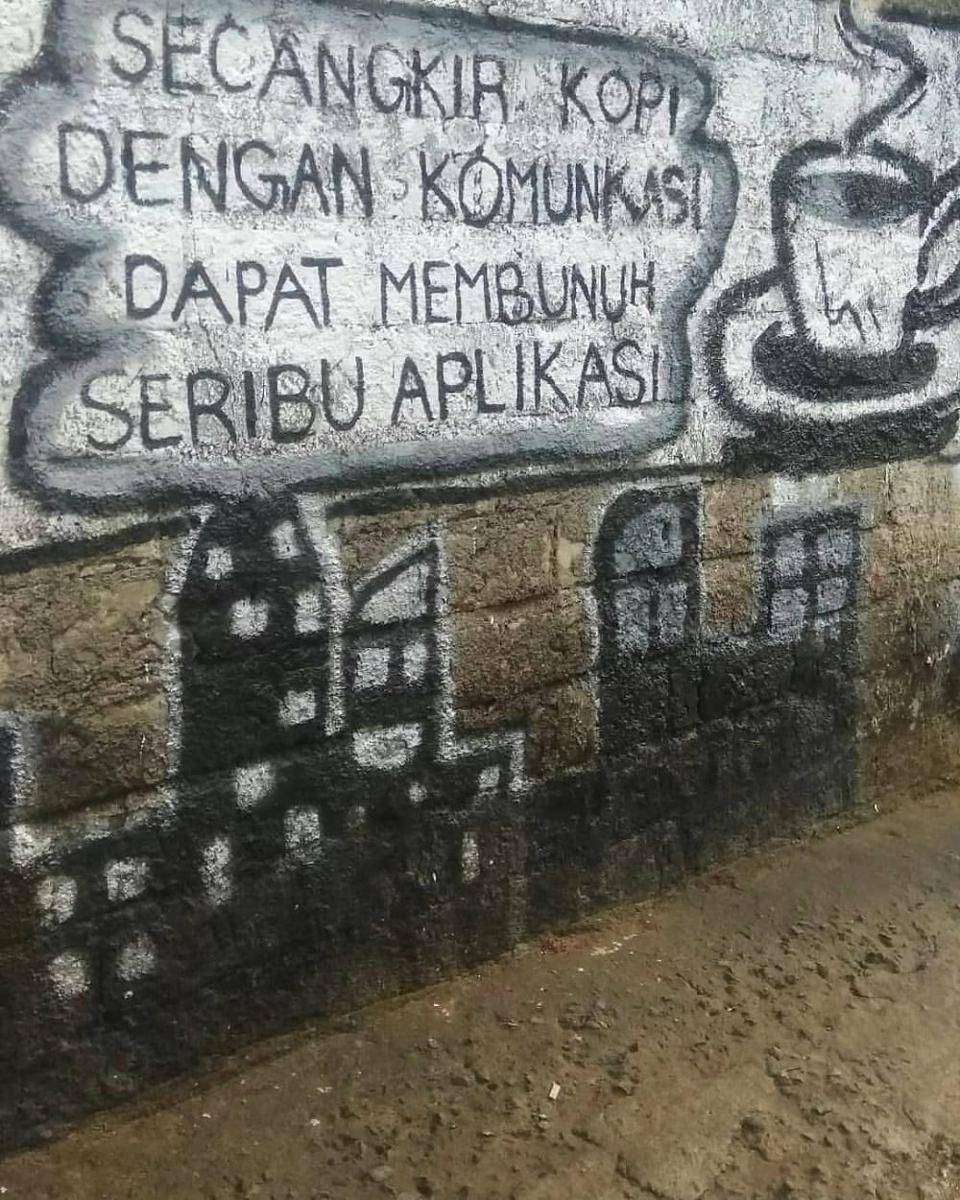 SECANGKIR KOPI
DENGAN KOMUNKASI
DAPAT MEMBUNUH
SERIBU APLIKASI